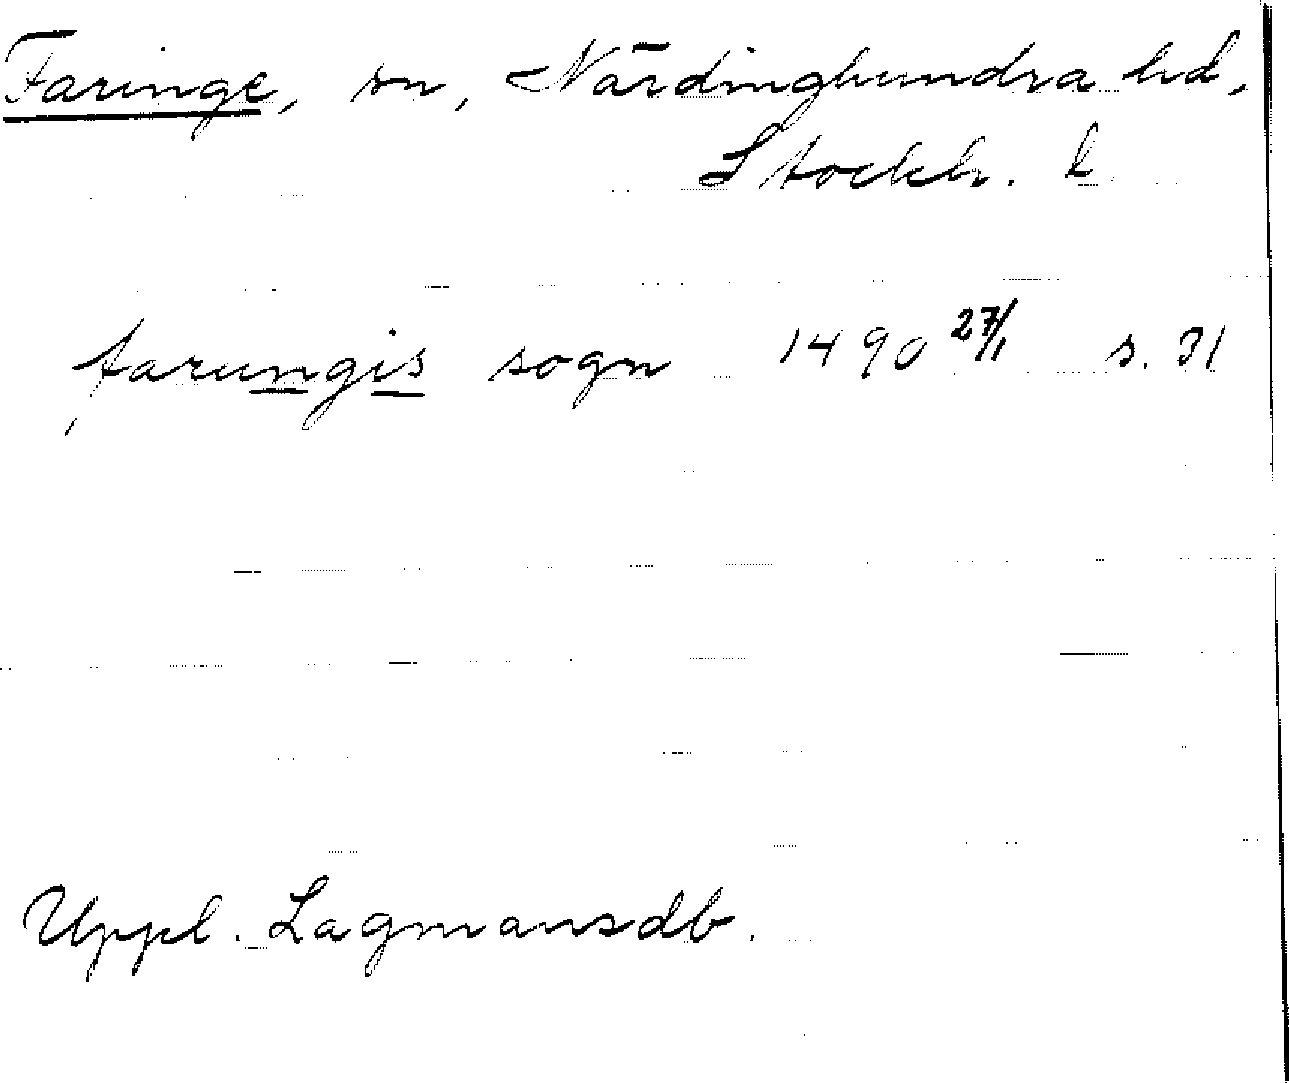 Faringe, sn, Närdinghundra hd,
Stockh. l
farungis sogn 1490 27/1 s. 31
Uppl. Lagmansdb.